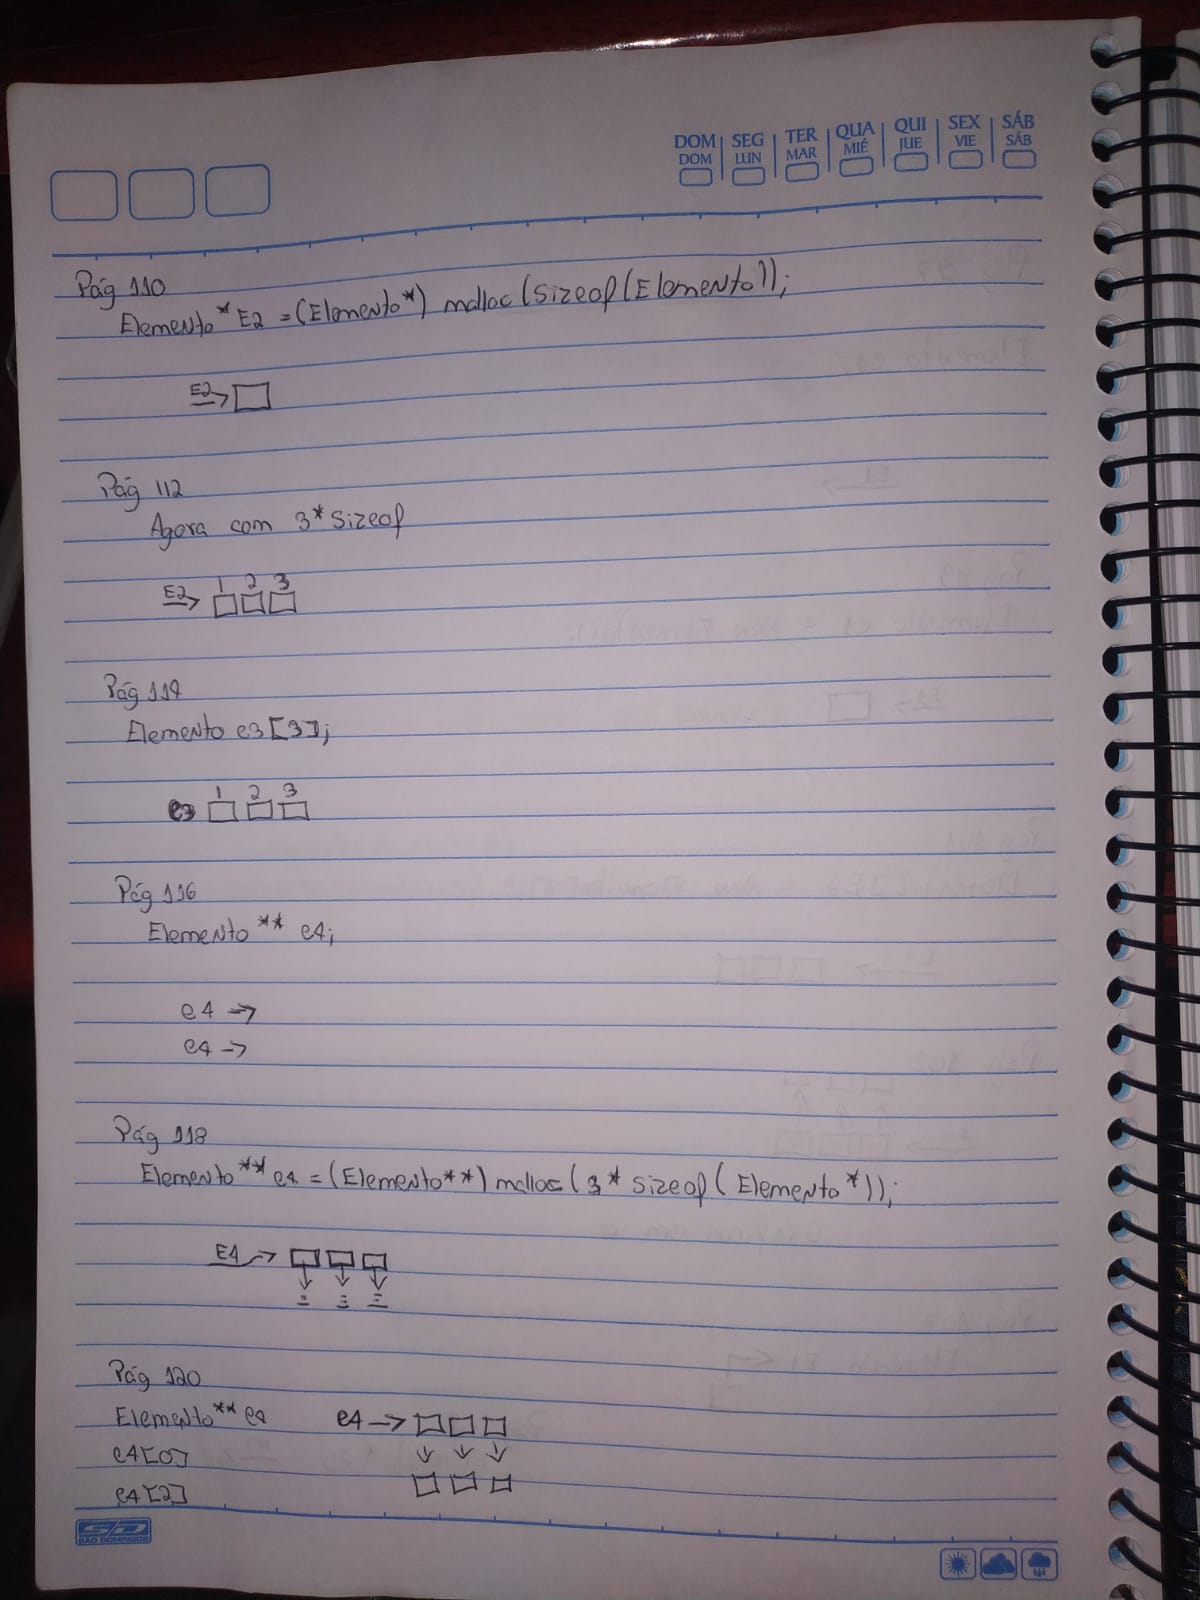 DOM SEG TER QUA QUI SEX SÁB
DOM LUN MAR MIÉ JUE VIE SÁB
Pág 110
Elemento* E2 = (Elemento*) malloc (sizeof (Elemento));
E2
Pág 112
Agora com 3* sizeof
1 2 3
E2
Pág 114
Elemento e3[3];
1 2 3
e3
Pág 116
Elemento ** e4;
e4 ->
e4 ->
Pág 118
Elemento** e4 = (Elemento**) malloc (3* sizeof (Elemento*));
E4 ->
Pág 120
Elemento** e4 e4 ->
e4[0]
e4[2]
SD
SÃO DOMINGOS